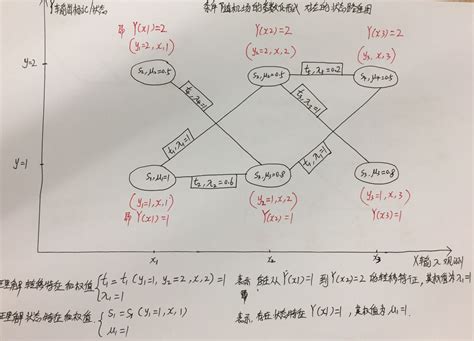 Y输出标记/状态
条件随机场的参数化形式 对应的状态路径图
即 Y(x1)=2
Y(x2)=2
Y(x3)=2
(y1=2,x,1)
(y2=2,x,2)
(y3,x,3)
y=2
S2,μ2=0.5
S2,μ2=0.5
t3,λ3=0.2
S4,μ4=0.5
t1,λ1=1
y=1
S1,μ1=1
t2,λ2=0.6
S3,μ3=0.8
S3,μ3=0.8
(y1=1,x,1)
(y2=1,x,2)
(y3=1,x,3)
即 Y(x1)=1
Y(x2)=1
Y(x3)=1
x1
x2
x3
X输入观测
理解转移特征和权值 t1=t1(y1=1,y2=2,x,2)=1
λ1=1
表示 存在从Y(x1)=1 到Y(x2)=2 的转移特征，其权值为λ1=1
理解状态特征和权值. S1=S1(y1=1,x,1)
μ1=1
表示 存在状态特征 Y(x1)=1，其权值为 μ1=1